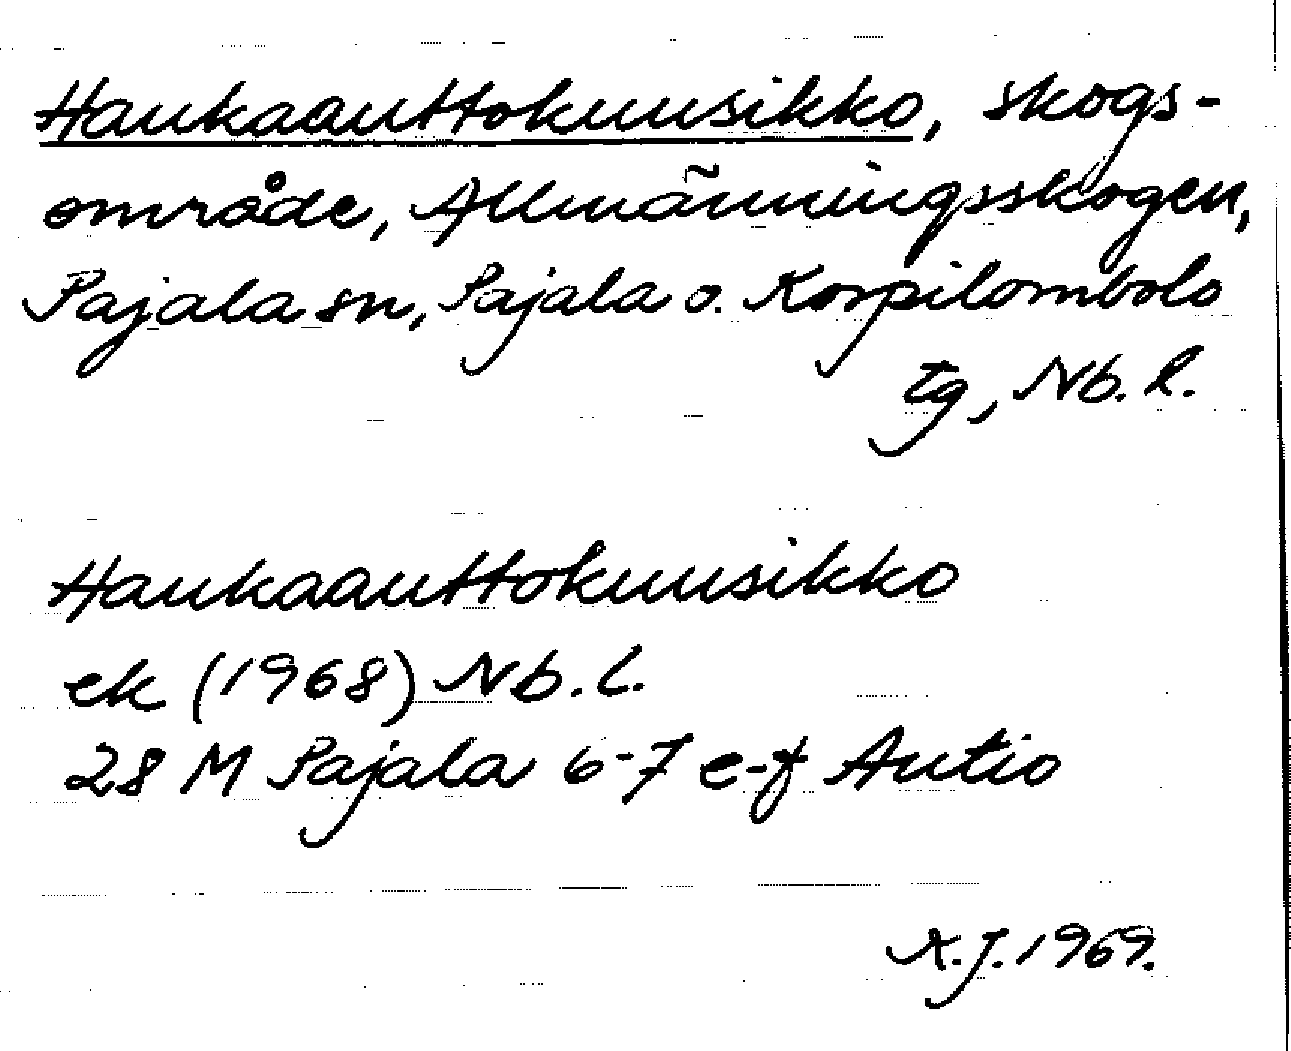 Haukaauttokuusikko, skogs-
område, Allmänningsskogen,
Pajala sn, Pajala o. Korpilombolo
tg, Nb. l.
Haukaauttokuusikko
ek (1968) Nb. l.
28 M Pajala 6-7 e-f Autio
A.J. 1969.